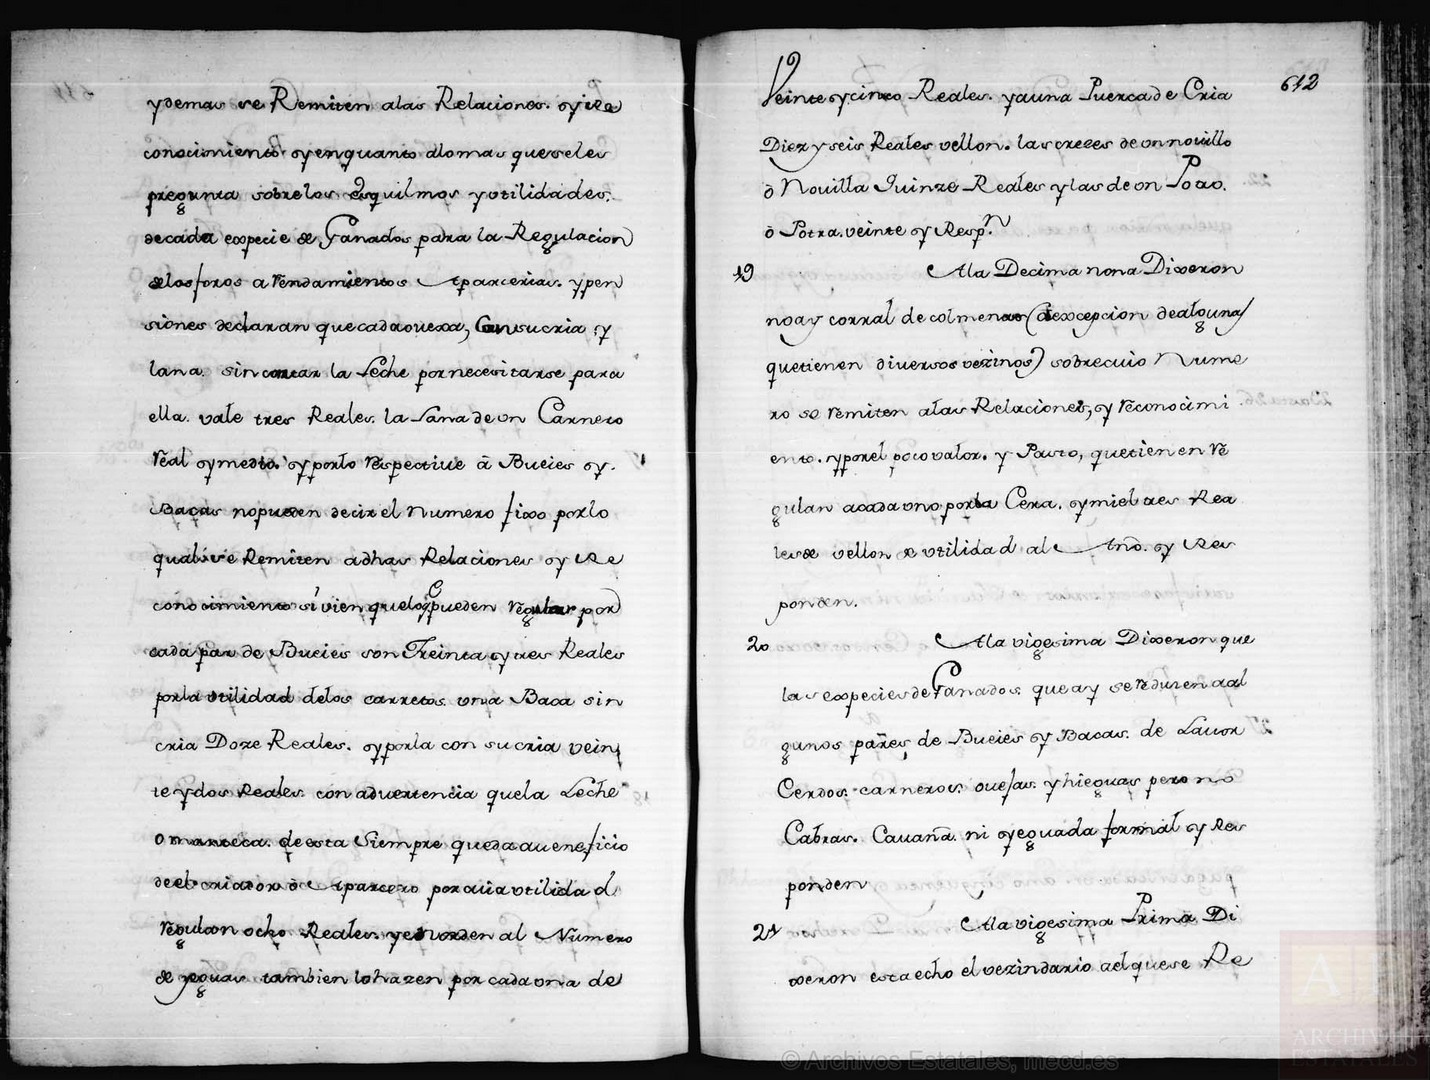 ydemas se Remiten alas Relaciones. yrre
conocimiento yenquanto alomas queseles
pregunta sobrelos esquilmos yutilidades.
decada expecie de Ganados para la Regulacion
delosforos arrendamientos Aparcerias. ypen
siones declaran quecadaovexa, Consucria y
lana. sincontar la Leche pornecesitarse para
ella. vale tres Reales. la Lana deun Carnero
Real ymedio. yporlo respective à Bueies y.
Bacas nopueden decir el numero fixo porlo
qualse Remiten adhas Relaciones y Re
conocimiento si vien quelo q pueden regular por
cada par de Bueies son Treinta ytres Reales
porla utilidad delos carretos. una Baca sin
cria Doze Reales. yporla con sucria vein
te ydos Reales. con advertencia quela Leche
o manteca. deesta Siempre queda abeneficio
deel criador ò Aparcero porcuia utilidad
regulan ocho Reales. yen orden al Numero
de yeguas tambien lohazen por cada una de
612
Veinte ycinco Reales. yauna Puerca de Cria
Diez y seis Reales vellon. las crezes de un novillo
ò Novilla Quinze Reales y las de un Potro.
ò Potra. veinte y Respn
19 Ala Decima nona Dixeron
noay corral de colmenas (aexcepcion dealgunas
quetienen diversos vezinos) sobrecuio Nume
ro se remiten alas Relaciones, y reconocimi
ento. yporel poco valor. y Pasto, quetienen re
gulan acada uno porla Cera. ymiel tres Rea
les de vellon de utilidad al Año. y Res
ponden.
20 Ala vigesima Dixeron que
las expecies de Ganados. que ay sereducen aal
gunos pares, de Bueies y Bacas. de Lavor
Cerdos. carneros. ovejas. y hieguas pero no
Cabras. Cavaña. ni yeguada formal y Res
ponden
21 Ala vigesima Prima Di
xeron esta echo el vezindario aelquese Re
© Archivos Estatales, mecd.es
ARCHIVOS
ESTATALES